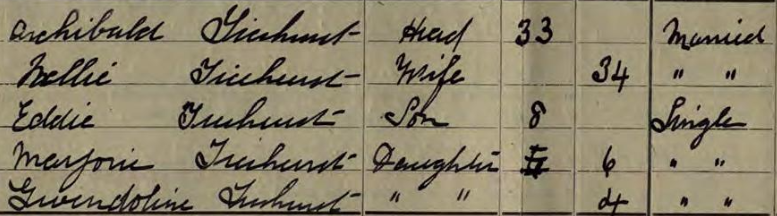 Archibald Ticehurst Head 33 Married
Nellie Ticehurst Wife 34 " "
Eddie Ticehurst Son 8 Single
Marjorie Ticehurst Daughter 6 " "
Gwendoline Ticehurst " " 4 " "